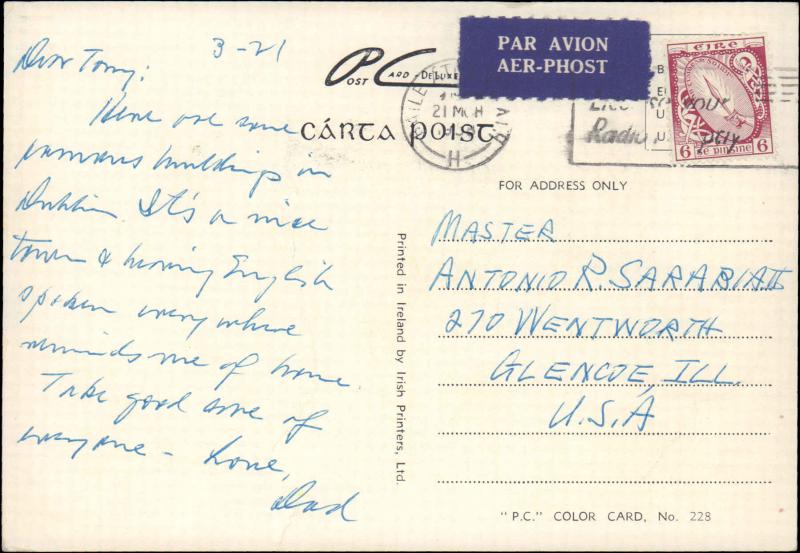 3-21
Dear Tony:
Here are some
famous buildings in
Dublin. It's a nice
town & hearing English
spoken everywhere
reminds me of home.
Take good care of
everyone - Love,
Dad
POST CARD - DE LUXE
CÁRTA POIST
PAR AVION
AER-PHOST
21 MCH
H
ÉIRE
6 6
FOR ADDRESS ONLY
MASTER
ANTONIO R. SARABIA II
270 WENTWORTH
GLENCOE, ILL.
U.S.A
Printed in Ireland by Irish Printers, Ltd.
"P.C." COLOR CARD, No. 228